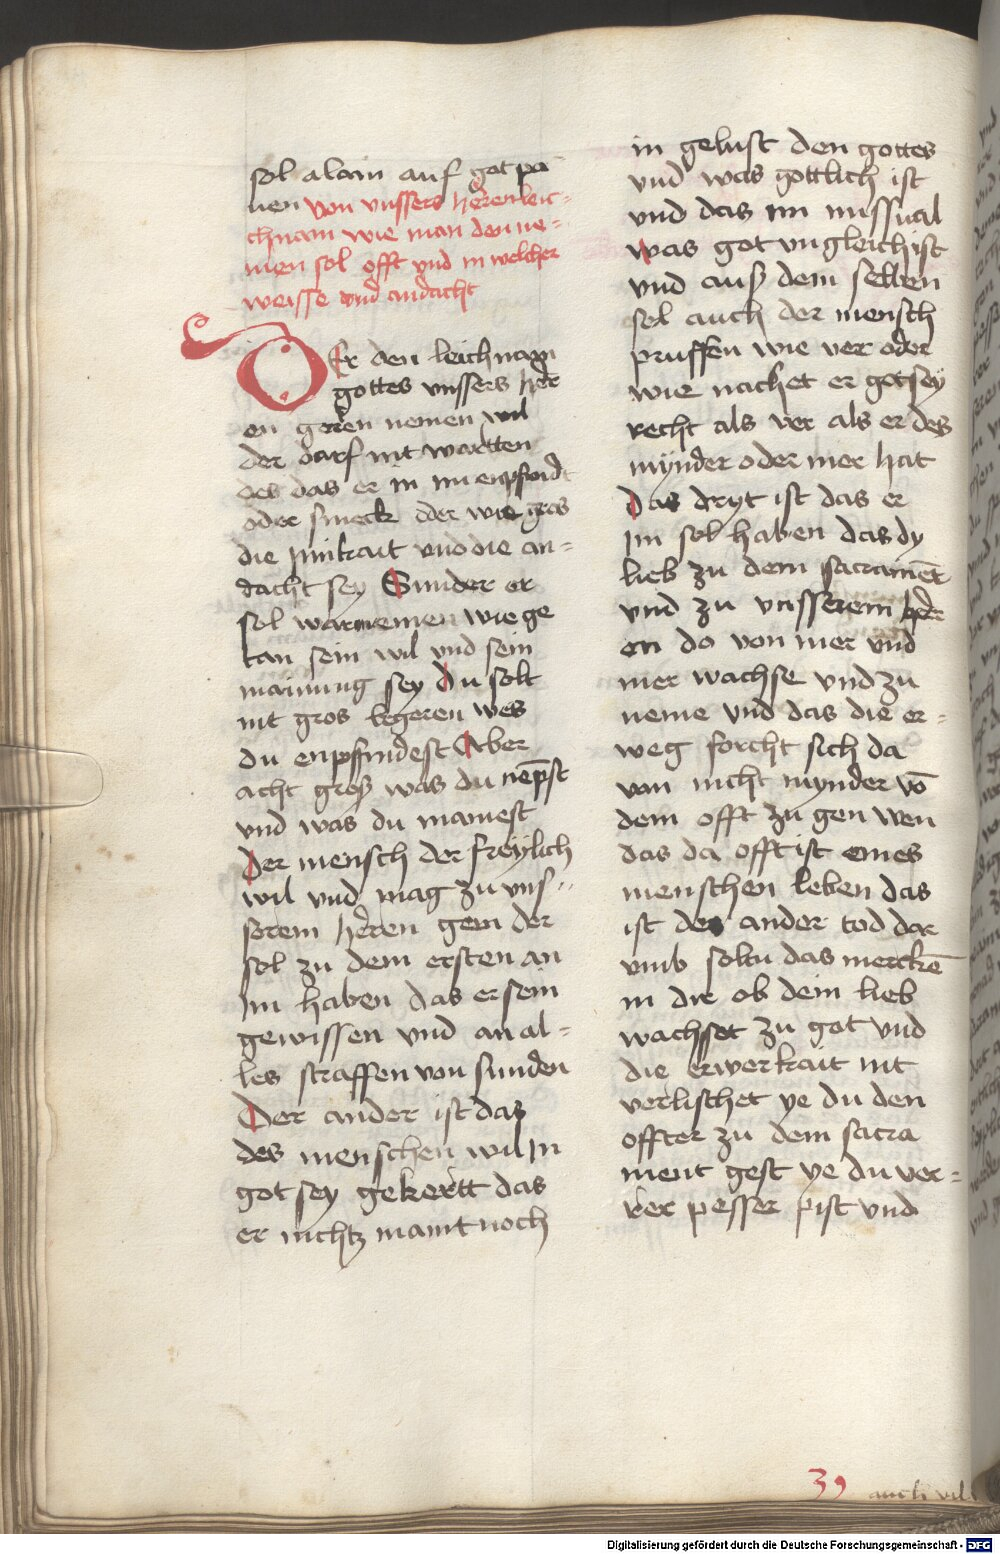 sol alain auf got pa
uen von unssers herenleic-
chnam wie man den ne-
men sol offt vnd in welcher
weisse vnd andacht
Er den leichnam
gottes vnssers her
en geren nemen wil
der darf nit wartten
des das er in im enpfind
oder smeck oder wie gros
die jnnikait vnd die an-
dacht sey Sunder er
sol warnemen wie ge
tan sein wil vnd sein
mainung sey du solt
nit gros begeren wes
du enpfindest Aber
acht groß was du nēpst
vnd was du mainest
Der mensch der freylich
wil vnd mag zu vns-
serem heren gen der
sol zu dem ersten an
Im haben das er sein
gewissen vnd an al-
les straffen von sunden
Der ander ist daz
des menschen wil In
got sey gekertt das
er nichtz maint noch
in gelust den gottes
vnd was gottlich ist
vnd das im missual
was got vngleich ist
vnd auß dem selben
sol auch der mensch
pruffen wie ver oder
wie nachet er got sey
recht als ver als er des
mynder oder mer hat
Das dryt ist das er
Im sol haben das dy
lieb zu dem sacramēt
vnd zu vnsserem her
en do von mer vnd
mer wachse vnd zu
neme vnd das die er-
weg forcht sich da
von nicht mynder vō
dem offt zu gen wen
das da offt ist eines
menschen leben das
ist des ander tod dar
vmb soltu das merckē
in dir ob dein lieb
wachset zu got vnd
die erwerkait nit
verlischet ye du den
offter zu dem sacra
ment gest ye du ver-
rer pesser pist vnd
39 auch vil
Digitalisierung gefördert durch die Deutsche Forschungsgemeinschaft - DFG